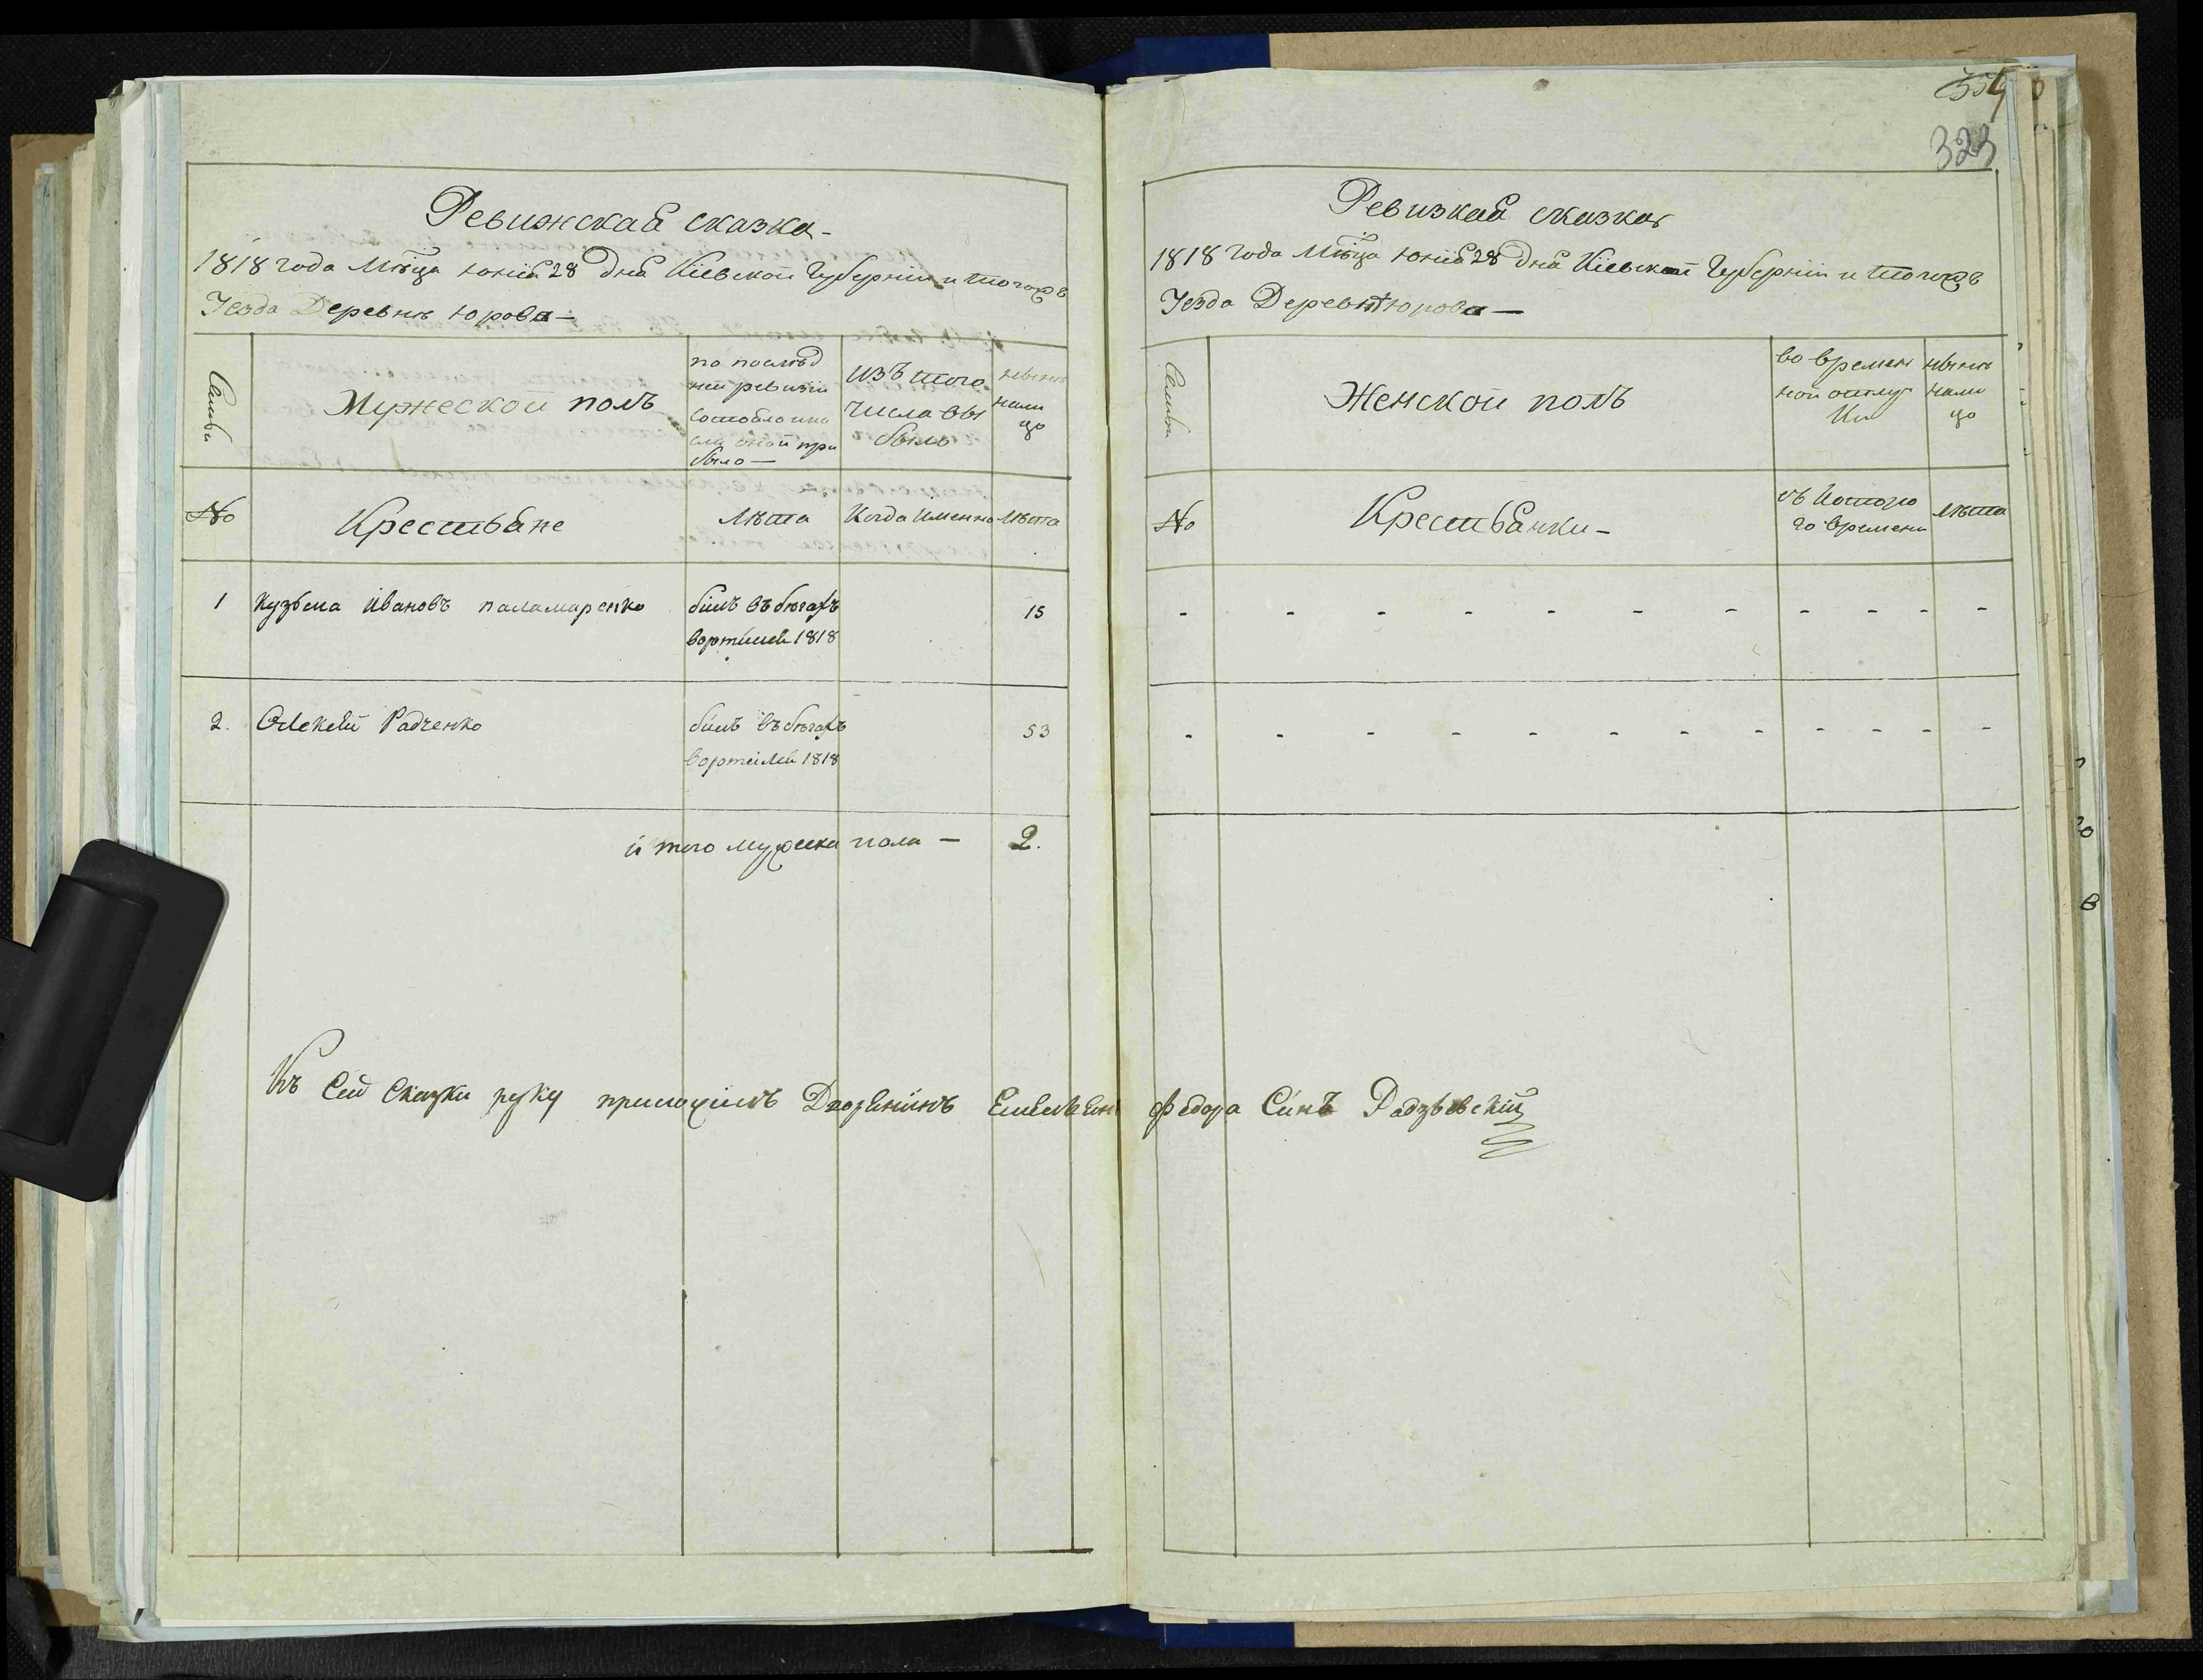 Ревижская сказка -
1818 года Мсца юнїя 28 дня Кіевской Губернїи и тогожъ
Уезда Деревнѣ Юрова —
Семьи
Мужеской полъ
по послѣд
ней ревизїи
состояло ипо
сли оной при
было —
изъ того
числа вы
было
нынѣ
нали
цо
№
Крестьяне
лѣта
Когда именно
лѣта
1 Кузьма Ивановъ паламаренко билъ въ бѣгахъ 15
1818
2. Олексѣй Радченко билъ въ бѣгахъ 53
1818
и того мужеска пола — 2.
Къ Сей Сказки руку приложилъ Двозенинъ
354
323
Ревизкая сказка
1818 года Мсца юнїя 28 дня Кіевской Губернїи и тогожъ
Уезда Деревнѣ Юрова —
Семьи
Женской полъ
во времен
ной отлуч
ки
нынѣ
нали
цо
№
Крестьянки -
съ которо
го времени
лѣта
- - - - - - - - - - - -
- - - - - - - - - - - - -
Федора Синъ Радзѣевскій